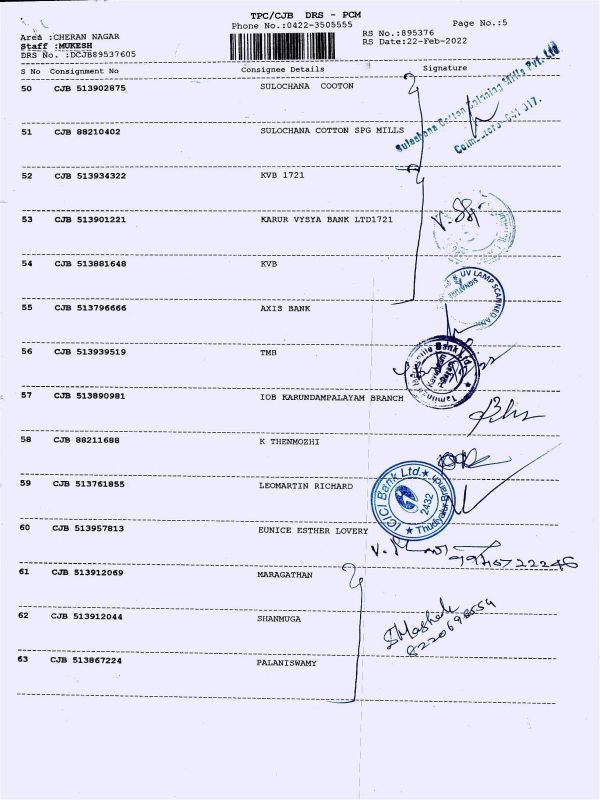 TPC/CJB DRS - PCM
Phone No.:0422-3505555
Page No.:5
Area :CHERAN NAGAR
Staff :MUKESH
DRS No. :DCJB89537605
RS No.:895376
RS Date:22-Feb-2022
S No Consignment No Consignee Details Signature
50 CJB 513902875 SULOCHANA COOTON
Sulochana Cotton Spinning Mills Pvt. Ltd
Coimbatore-641 017.
51 CJB 88210402 SULOCHANA COTTON SPG MILLS
52 CJB 513934322 KVB 1721
53 CJB 513901221 KARUR VYSYA BANK LTD1721
54 CJB 513881648 KVB
UV LAMP SCANNED AND
55 CJB 513796666 AXIS BANK
56 CJB 513939519 TMB
Tamilnad Mercantile Bank Ltd.
57 CJB 513890981 IOB KARUNDAMPALAYAM BRANCH
58 CJB 88211688 K THENMOZHI
59 CJB 513761855 LEOMARTIN RICHARD
ICICI Bank Ltd.
2432
60 CJB 513957813 EUNICE ESTHER LOVERY
61 CJB 513912069 MARAGATHAN
62 CJB 513912044 SHANMUGA
63 CJB 513867224 PALANISWAMY